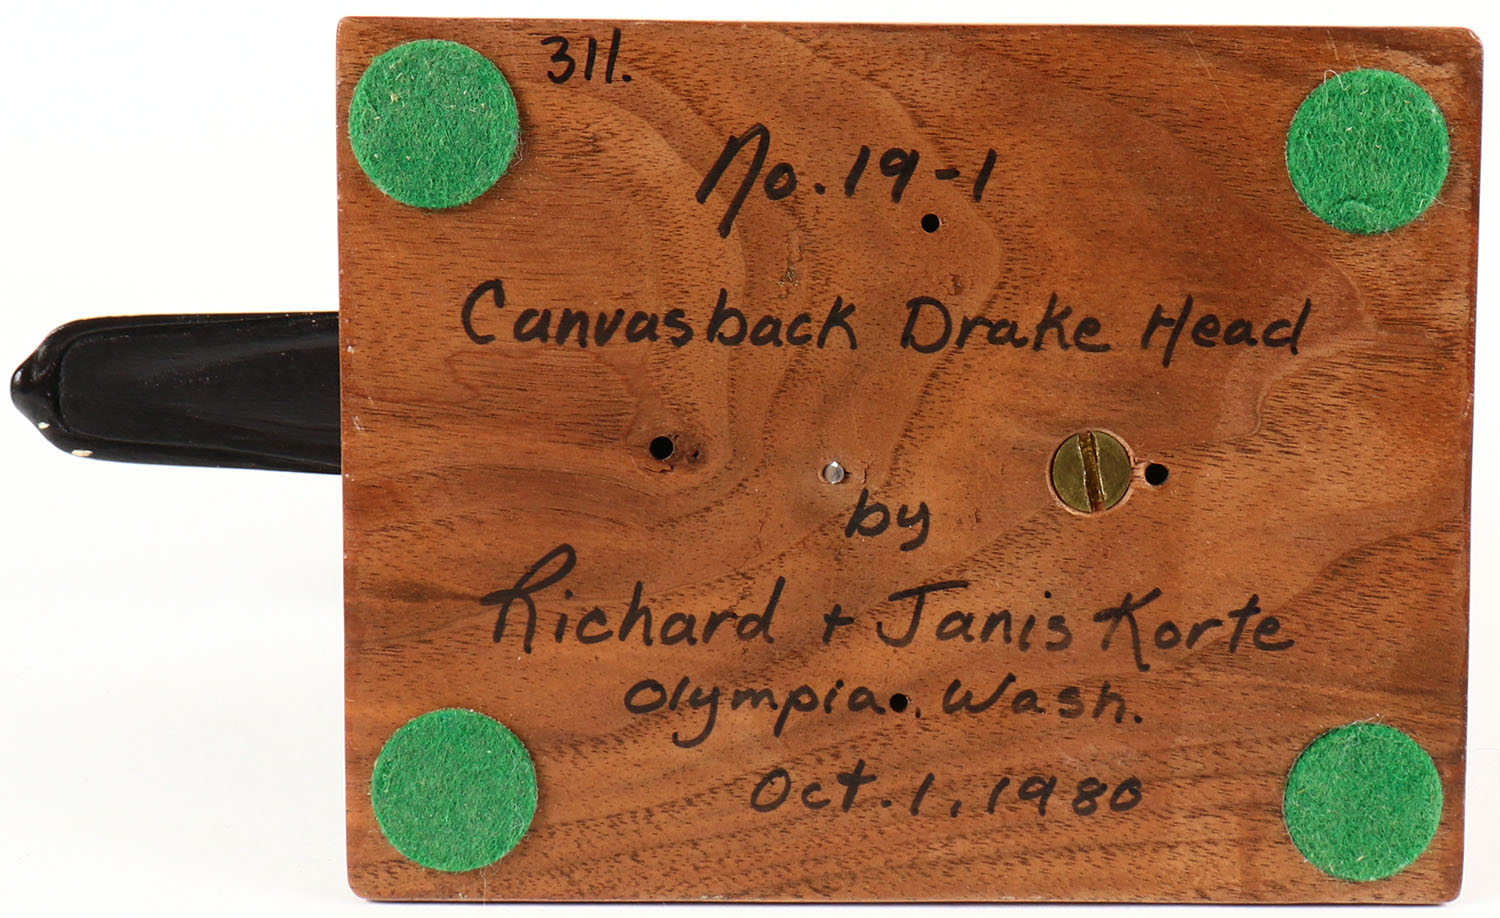 311.
No. 19-1
Canvasback Drake Head
by
Richard + Janis Korte
Olympia, Wash.
Oct. 1, 1980